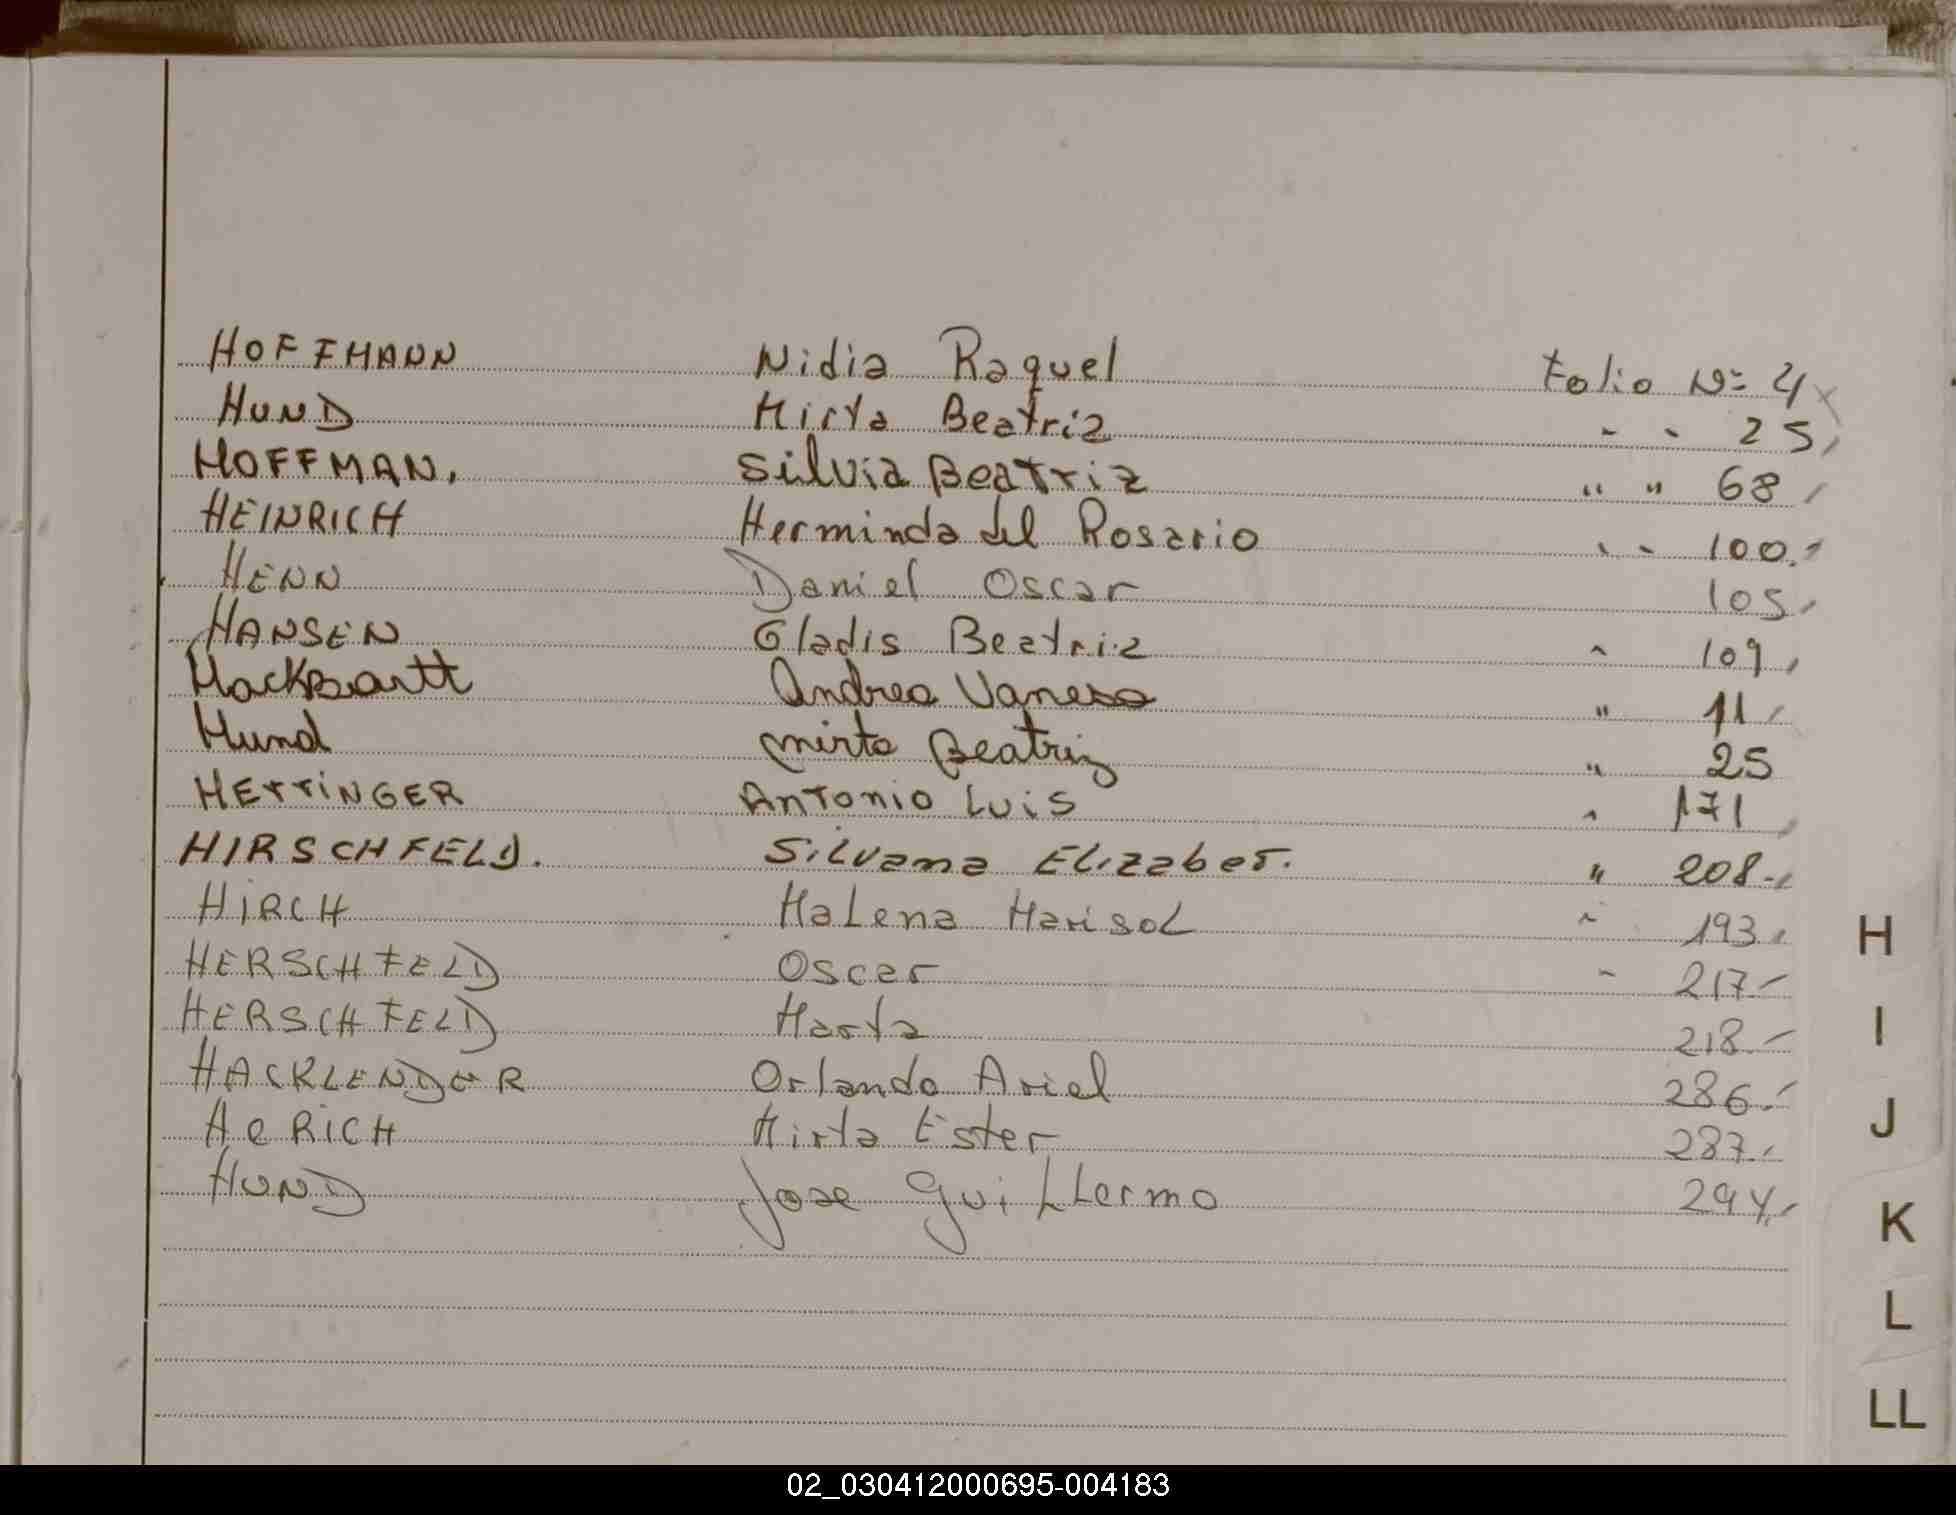 HOFFMANN Nidia Raquel Folio Nº 4
HUND Mirta Beatriz " " 25
HOFFMAN. Silvia Beatriz " " 68
HEINRICH Herminda del Rosario " " 100
HENN Daniel Oscar 105
HANSEN Gladis Beatriz " 109
Hackbartt Andrea Vanesa " 11
Hund Mirta Beatriz " 25
HETTINGER Antonio Luis " 171
HIRSCHFELD. Silvana Elizabet. " 208
HIRCH Malena Marisol " 193
HERSCHFELD Oscar " 217
HERSCHFELD Marta 218
HACKLENDER Orlando Ariel 286
HERICH Mirta Ester 287
HUND Jose Guillermo 294
H
I
J
K
L
LL
02_030412000695-004183